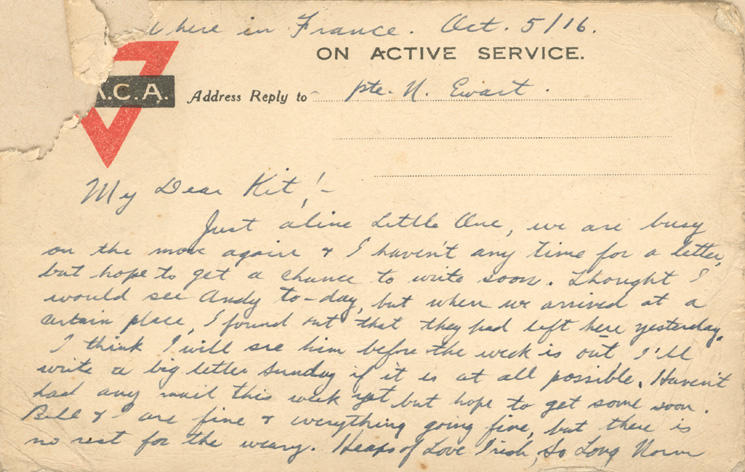 here in France. Oct. 5/16.
ON ACTIVE SERVICE.
.C.A.
Address Reply to Pte. N. Ewart.
My Dear Kit!-
Just a line Little One, we are busy
on the move again & I haven't any time for a letter,
but hope to get a chance to write soon. Thought I
would see Andy to-day, but when we arrived at a
certain place, I found out that they had left here yesterday.
I think I will see him before the week is out, I'll
write a big letter Sunday if it is at all possible. Haven't
had any mail this week yet but hope to get some soon.
Bill & I are fine & everything going fine, but there is
no rest for the weary. Heaps of Love Trish, So Long Norm